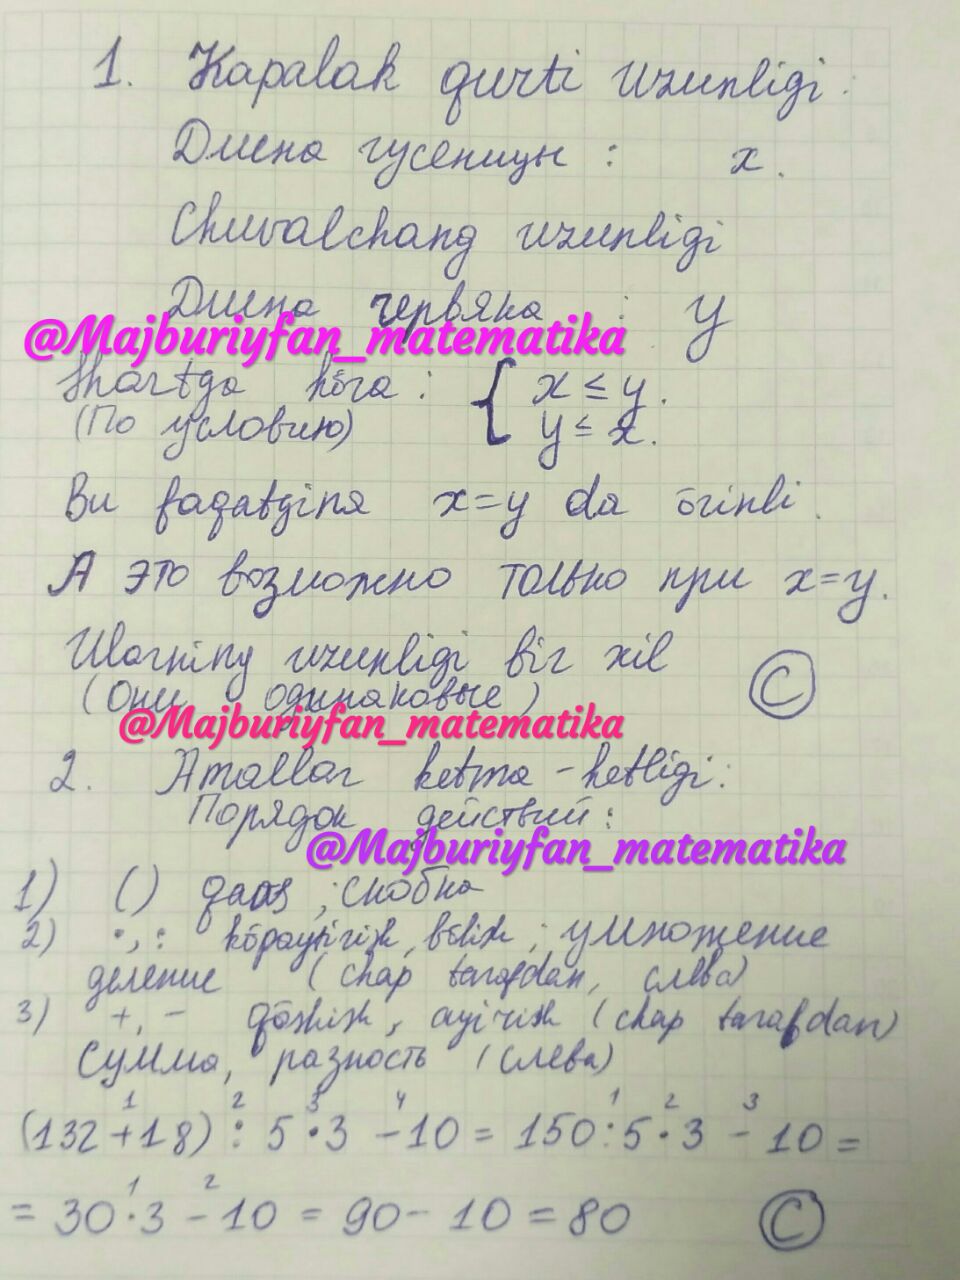 1. Kapalak qurti uzunligi:
Длина гусеницы : x.
Chuvalchang uzunligi
Длина червяка : y
@Majburiyfan_matematika
Shartga ko̅ra : { x ≤ y.
(По условию) y ≤ x.
Bu faqatgina x=y da o̅rinli.
А это возможно только при x=y.
Ularning uzunligi bir xil
(Они одинаковые) C
@Majburiyfan_matematika
2. Amallar ketma-ketligi:
Порядок действий:
@Majburiyfan_matematika
1) () qavs ; скобка
2) ·, : ko̅paytirish, bo̅lish ; умножение
деление (chap tarafdan, слева)
3) +, - qo̅shish, ayirish (chap tarafdan)
Сумма, разность (слева)
1 2 3 4 1 2 3
(132+18) : 5·3 -10 = 150:5·3 - 10 =
1 2
= 30·3 -10 = 90- 10 = 80 C